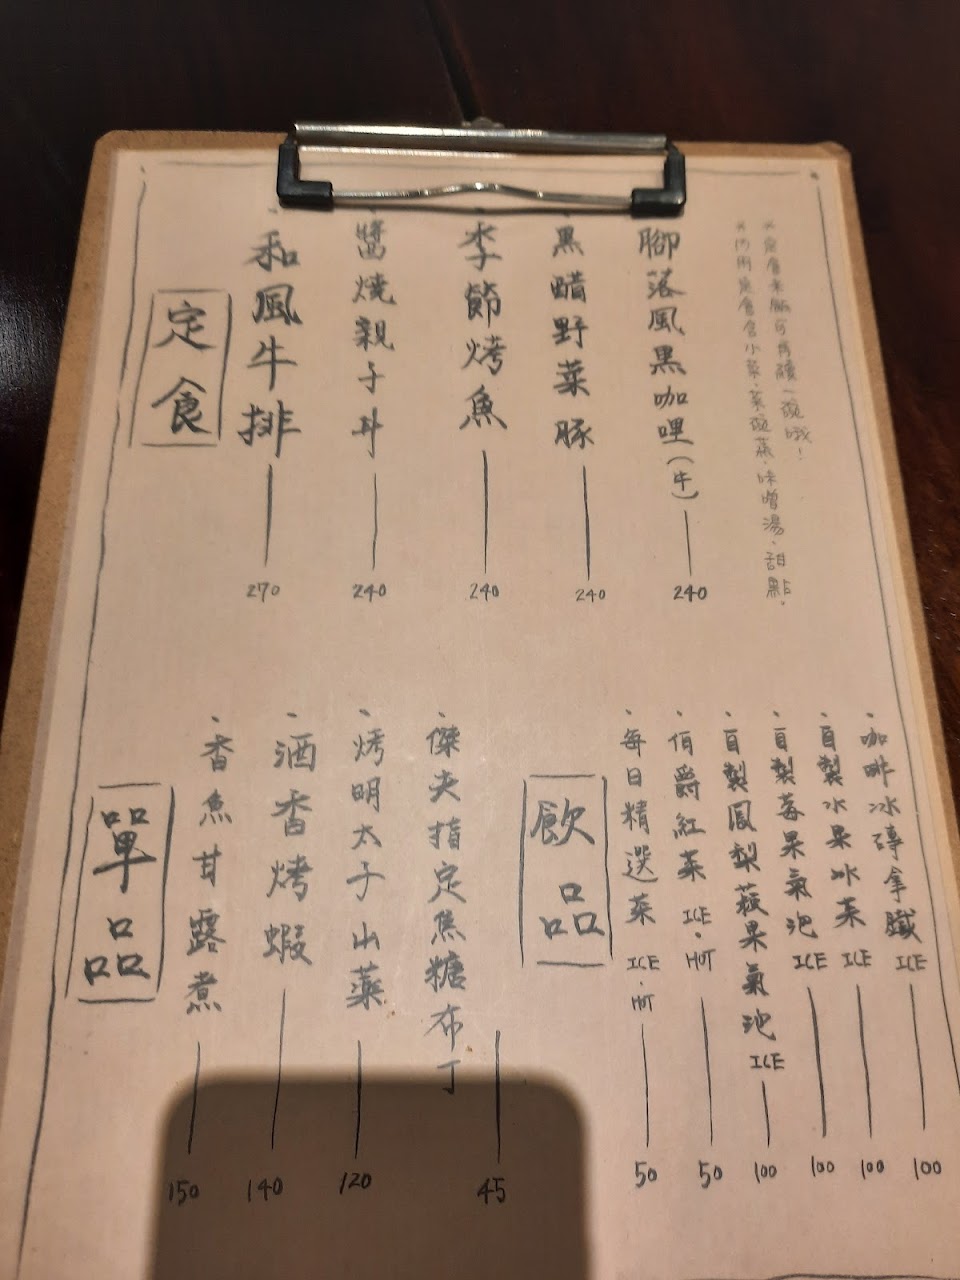 定食
和風牛排 270
醬燒親子丼 240
季節烤魚 240
黑醋野菜豚 240
腳落風黑咖哩(牛) 240
※定食米飯可再續一碗哦!
※內用定食含小菜、茶碗蒸、味噌湯、甜點。
單品
、香魚甘露煮 150
、酒香烤蝦 140
、烤明太子山藥 120
、傑夫指定焦糖布丁 45
飲品
、每日精選茶 ICE・HOT 50
、伯爵紅茶 ICE・HOT 50
、自製鳳梨蘋果氣泡 ICE 100
、自製莓果氣泡 ICE 100
、自製水果冰茶 ICE 100
、咖啡冰磚拿鐵 ICE 100